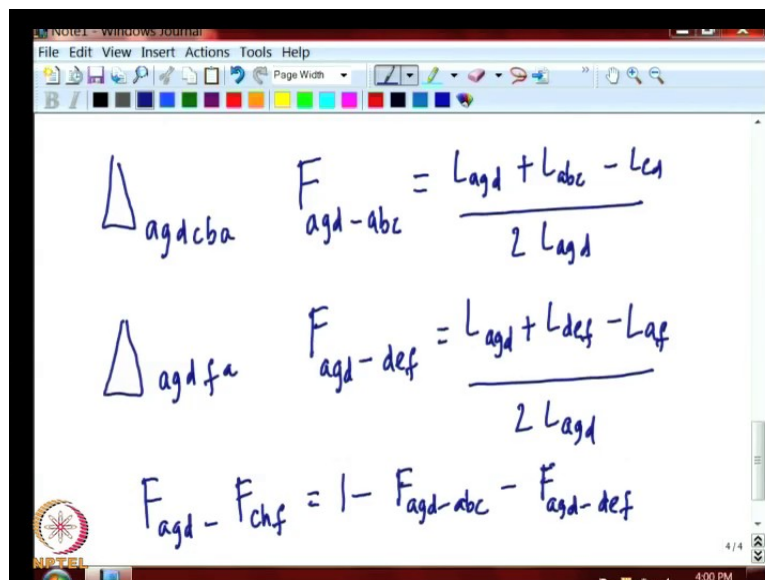 Note1 - Windows Journal
File Edit View Insert Actions Tools Help
Page Width
B I
Δ agdcba F agd-abc = (L agd + L abc - L cd) / 2 L agd
Δ agdfa F agd-def = (L agd + L def - L af) / 2 L agd
F agd - F chf = 1 - F agd-abc - F agd-def
4/4
NPTEL
4:00 PM